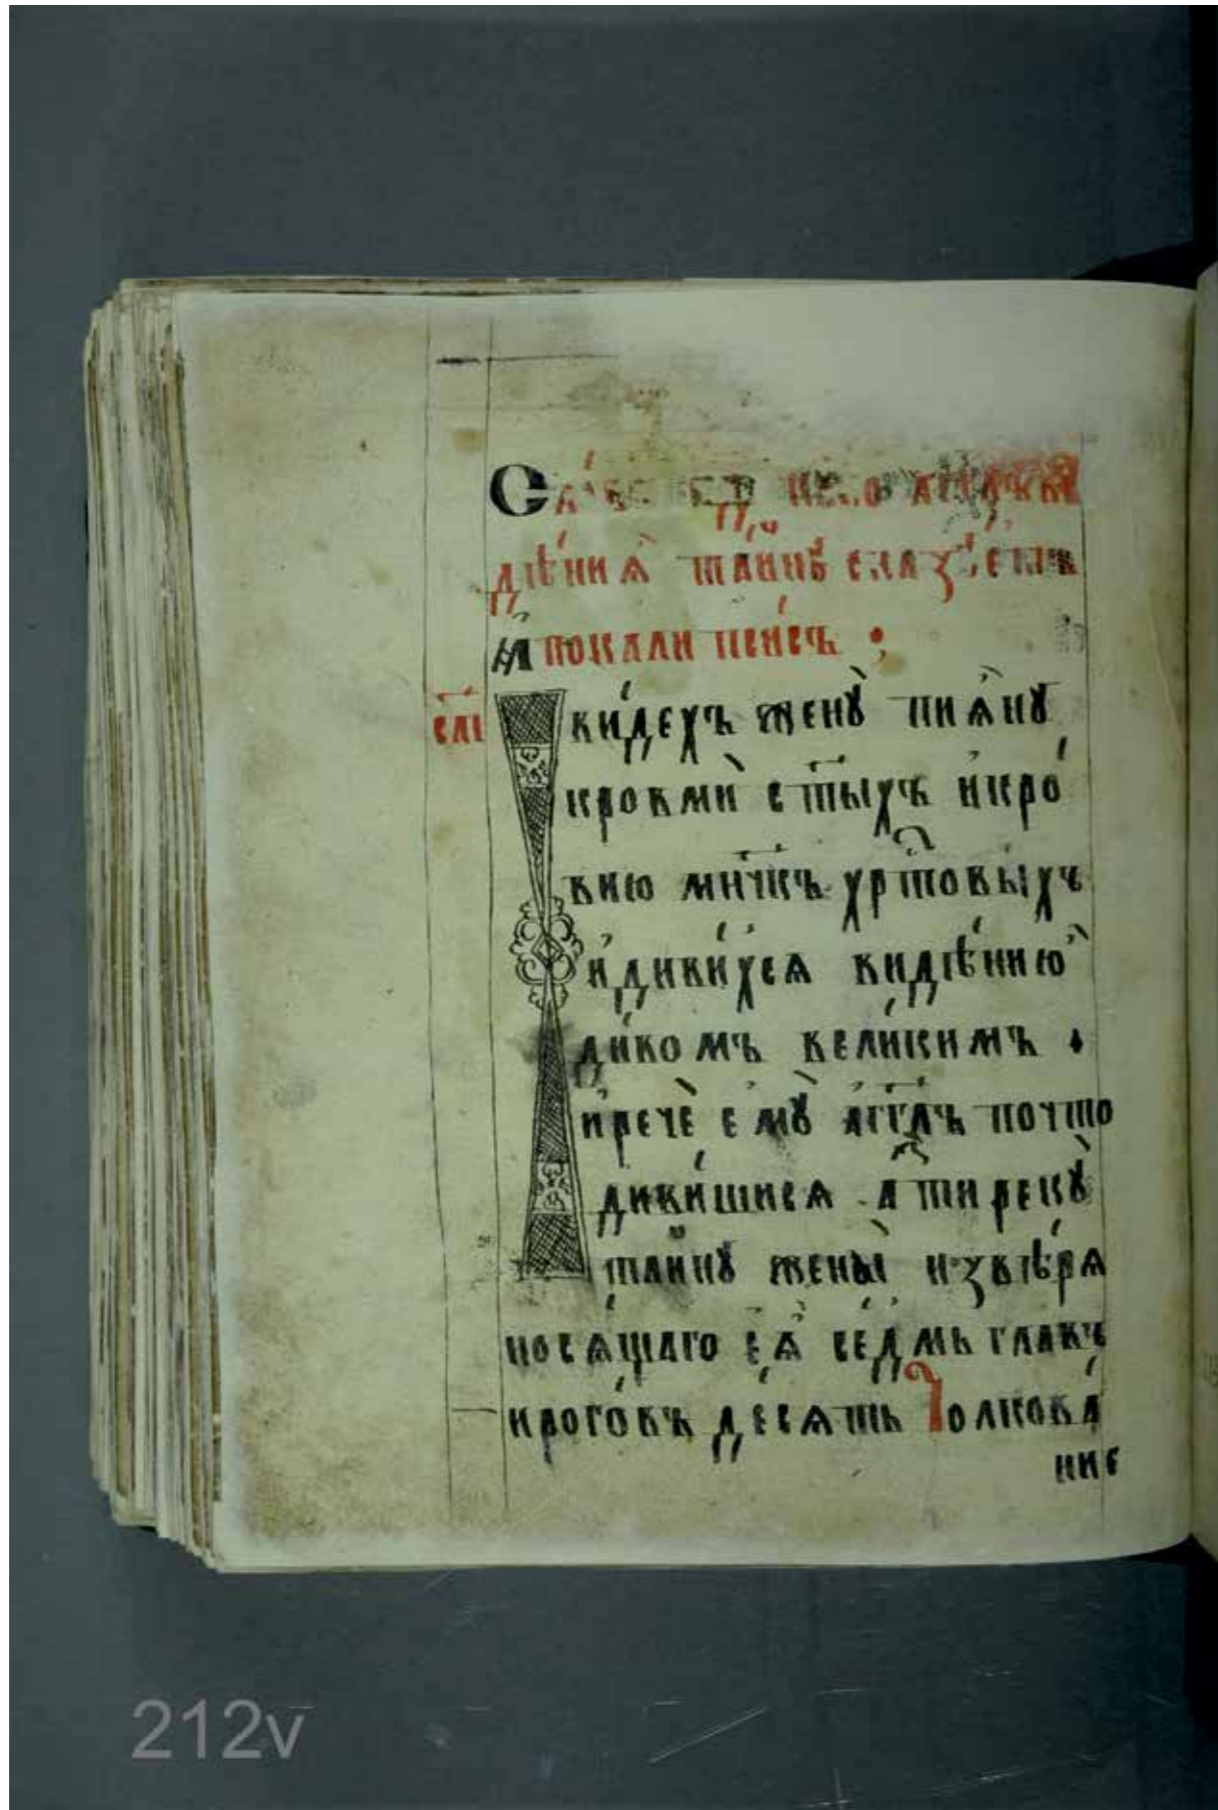 дѣ́нїѧ̀ та́инꙋ сказ
А҆покали́псисъ :
сл҃і
И ви́дехъ женꙋ̀ пиꙗ̀нꙋ
кровмѝ ст҃ыхъ и҆кро́
вию мч҃нкъ хрⷭ҇товыхъ
и҆диви́хсѧ видѣ́нию̀
ди́вомъ вели́кимъ .
и҆речѐ емꙋ̀ а҆гг҃лъ почто
диви́шисѧ а҆зъ ти рекꙋ̀
та́инꙋ жены̀ извѣ́рѧ
носѧ́щаго еѧ̀ се́дмь гла́въ
ирого́въ де́сѧть Толкова́
ние
212v